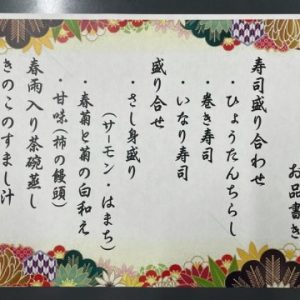 お品書き
寿司盛り合わせ
・ひょうたんちらし
・巻き寿司
・いなり寿司
盛り合せ
・さし身盛り
(サーモン・はまち)
・春菊と菊の白和え
・甘味(柿の饅頭)
春雨入り茶碗蒸し
きのこのすまし汁